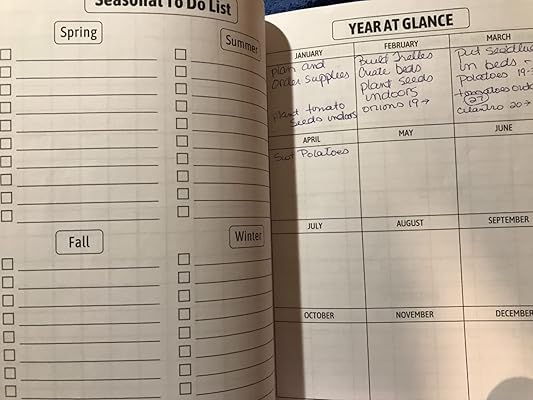 Seasonal To Do List
Spring
Summer
Fall
Winter
YEAR AT GLANCE
JANUARY
Plan and
Order Supplies
Plant tomato
Seeds indoors
FEBRUARY
Build Trellis
Create beds
Plant Seeds
indoors
onions 19→
MARCH
Put Seedlin
in beds -
Potatoes 19-
tomatoes
27
cilantro 20→
APRIL
Potatoes
MAY
JUNE
JULY
AUGUST
SEPTEMBER
OCTOBER
NOVEMBER
DECEMBE